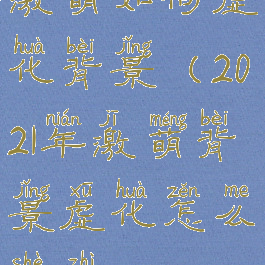 激萌如何虚
huà bèi jǐng
化背景(20
nián jī méng bèi
21年激萌背
jǐng xū huà zěn me
景虚化怎么
shè zhì